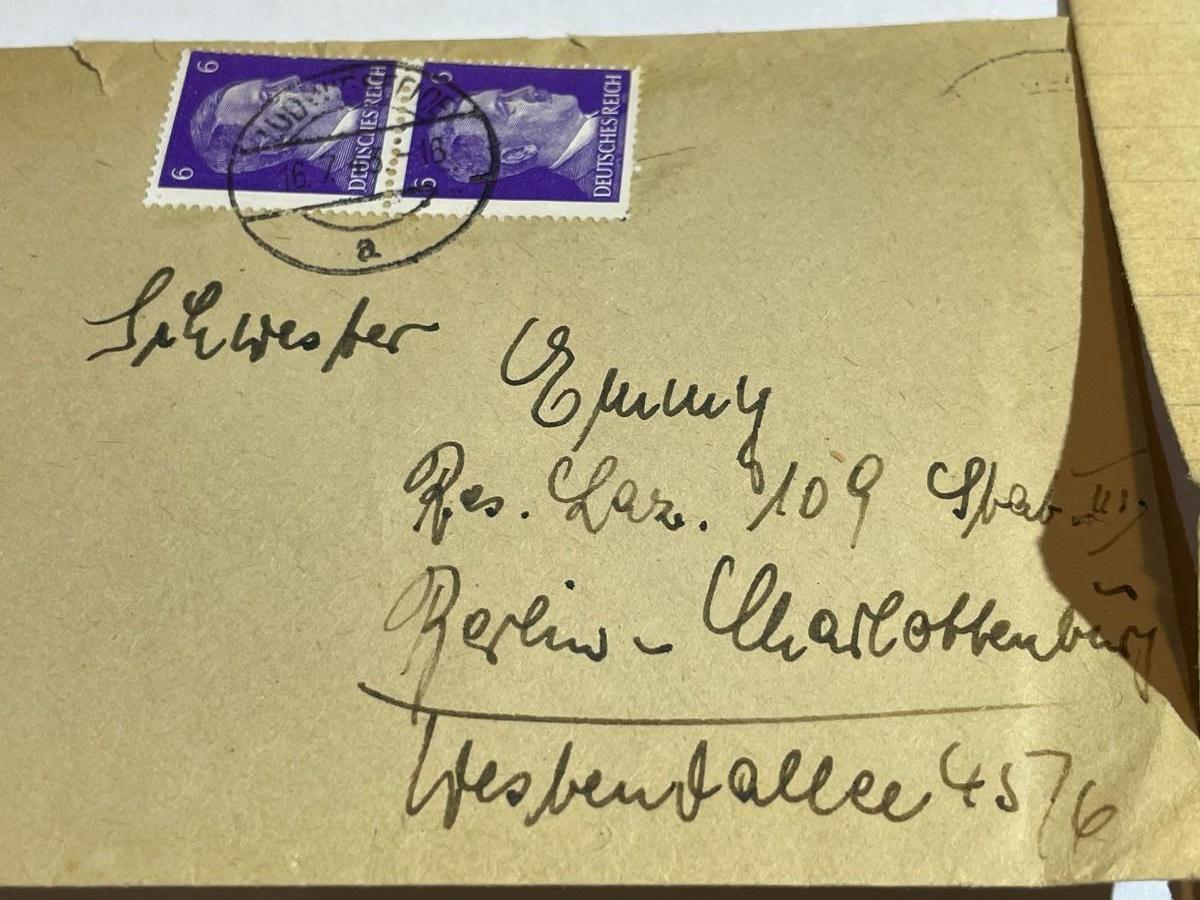 6 6 DEUTSCHES REICH
6 6 DEUTSCHES REICH
a
Schwester Emmy
Res. Laz. 109 Stab III
Berlin - Charlottenburg
Westendallee 45/6